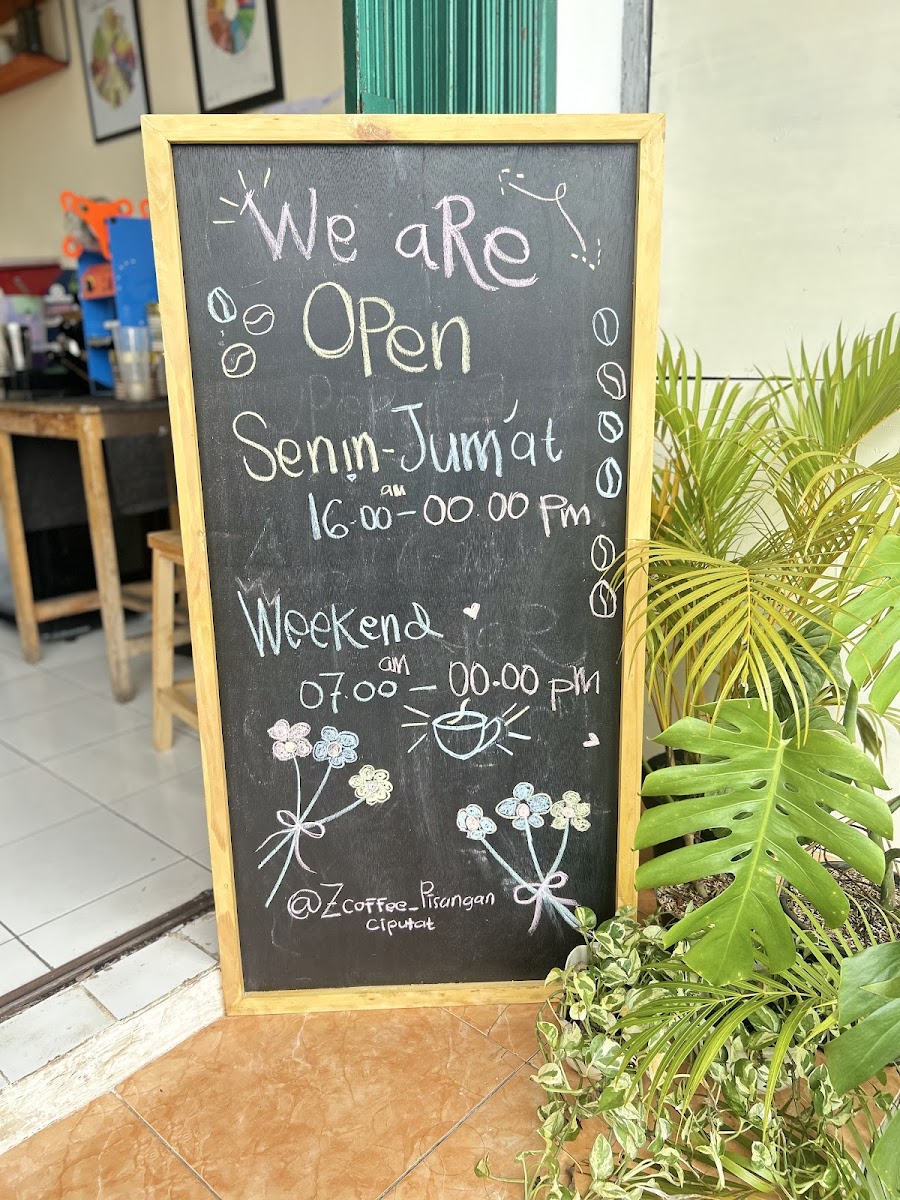 We aRe
Open
Senin-Jum'at
16.00 am - 00.00 pm
Weekend
07.00 am - 00.00 pm
@Zcoffee_Pisangan
Ciputat